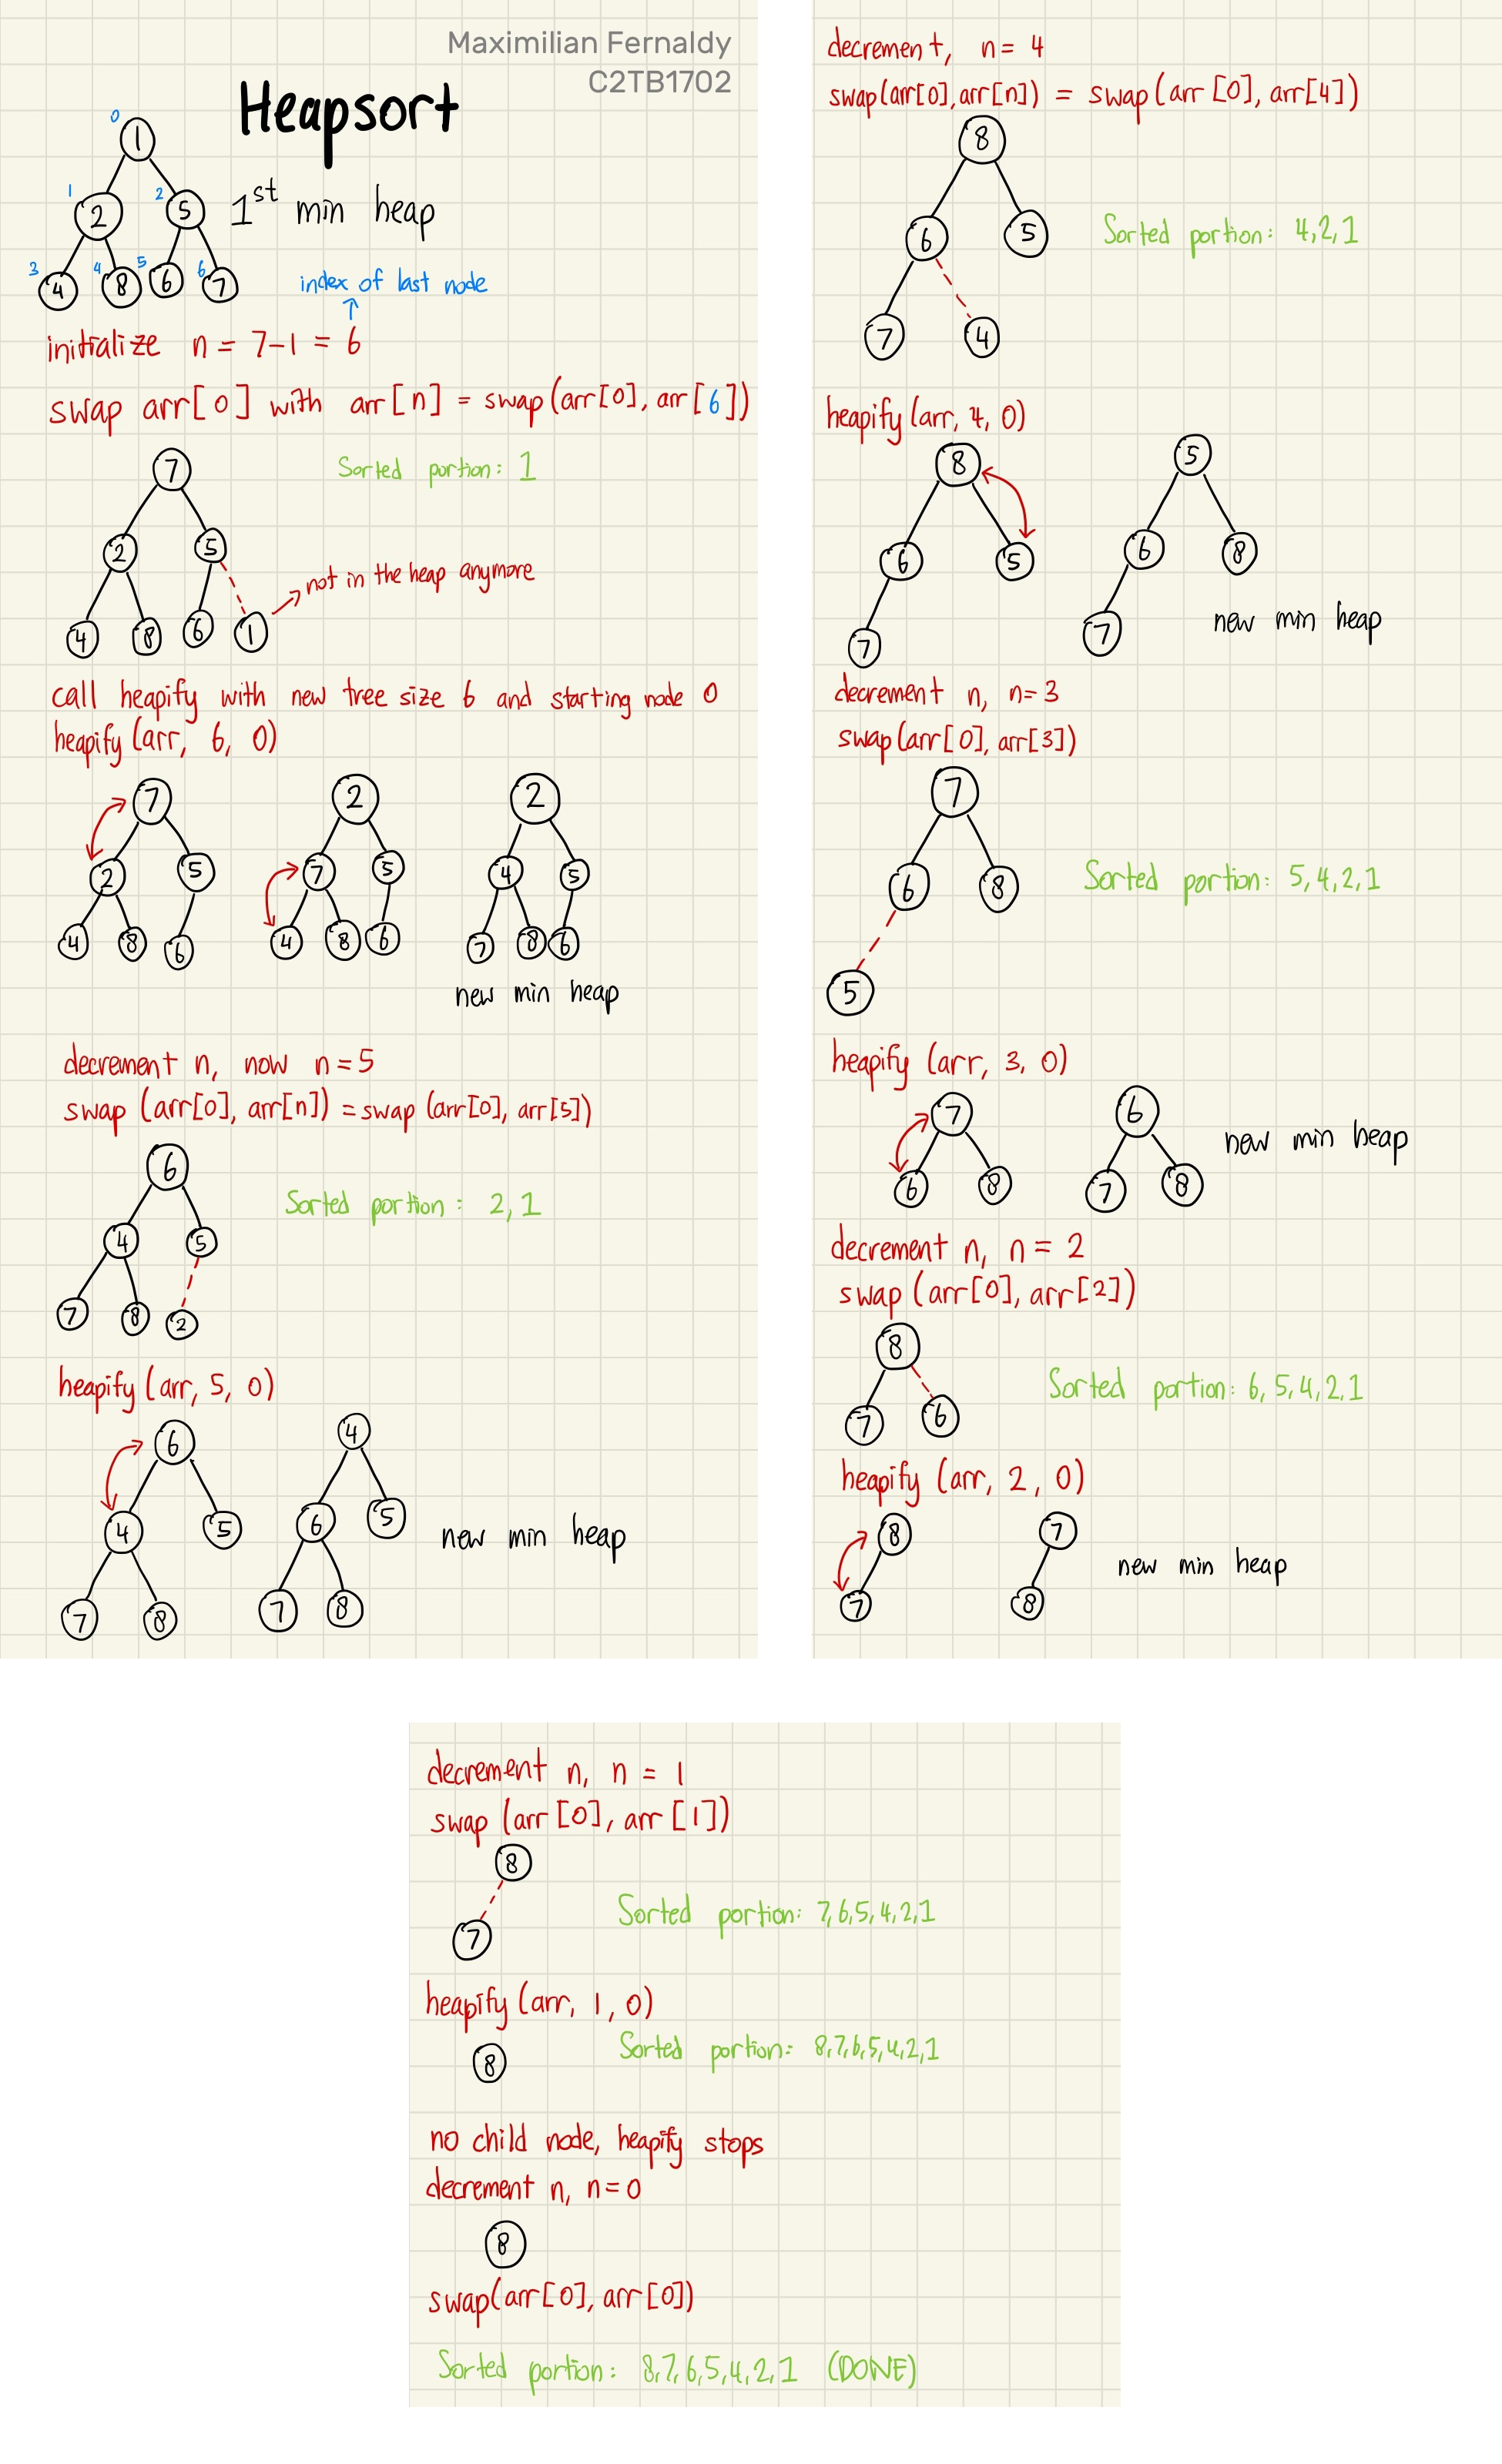 Maximilian Fernaldy
C2TB1702
Heapsort
0
1
1 2
2 5
1st min heap
3 4 5 6
4 8 6 7
index of last node
↑
initialize n = 7-1 = 6
swap arr[0] with arr[n] = swap(arr[0], arr[6])
7
Sorted portion: 1
2 5
not in the heap anymore
4 8 6 1
call heapify with new tree size 6 and starting node 0
heapify (arr, 6, 0)
7 2 2
2 5 7 5 4 5
4 8 6 4 8 6 7 8 6
new min heap
decrement n, now n=5
swap (arr[0], arr[n]) = swap (arr[0], arr[5])
6
Sorted portion : 2,1
4 5
7 8 2
heapify (arr, 5, 0)
6 4
4 5 6 5
new min heap
7 8 7 8
decrement, n= 4
swap(arr[0], arr[n]) = swap(arr[0], arr[4])
8
6 5
Sorted portion: 4,2,1
7 4
heapify (arr, 4, 0)
8 5
6 5 6 8
7 7
new min heap
decrement n, n=3
swap(arr[0], arr[3])
7
6 8
Sorted portion: 5,4,2,1
5
heapify (arr, 3, 0)
7 6
new min heap
6 8 7 8
decrement n, n = 2
swap (arr[0], arr[2])
8
Sorted portion: 6, 5,4,2,1
7 6
heapify (arr, 2, 0)
8 7
new min heap
7 8
decrement n, n = 1
swap (arr[0], arr[1])
8
Sorted portion: 7,6,5,4,2,1
7
heapify (arr, 1, 0)
Sorted portion: 8,7,6,5,4,2,1
8
no child node, heapify stops
decrement n, n=0
8
swap(arr[0], arr[0])
Sorted portion: 8,7,6,5,4,2,1 (DONE)